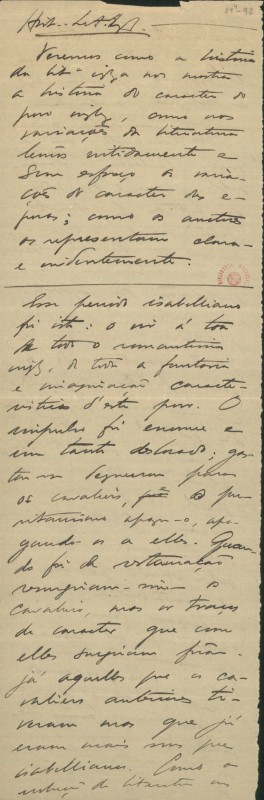 Hist. Lit. Ingl.
Veremos como a historia
da litª ingleza nos mostra
a historia do caracter do
povo inglez, como nas
variações da literatura
lemos nitidamente e
sem esforço as varia-
ções do caracter das e-
pocas; como os auctores
os representam clara-
e evidentemente.
Esse periodo isabelliano
foi isto: o
de todo o romantismo
inglez, de toda a fantasia
e imaginação caracte-
ristica d'este povo. O
impulso foi enorme e
um tanto desviado; gas-
os cavaleiros, o pu-
ritanismo apagou-o, apa-
gando-os a elles. Quan-
do foi da restauração
resurgiram sim os
cavaleiros, mas os traços
de caracter que com
elles surgiram foram
já aquelles que os ca-
valeiros anteriores ti-
veram mas que já
eram mais seus que
isabellianos. Como a